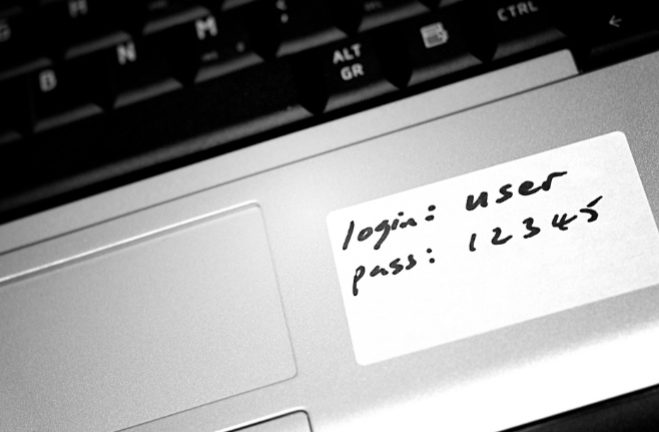 B N M
ALT
GR
CTRL
←
login: user
pass: 12345